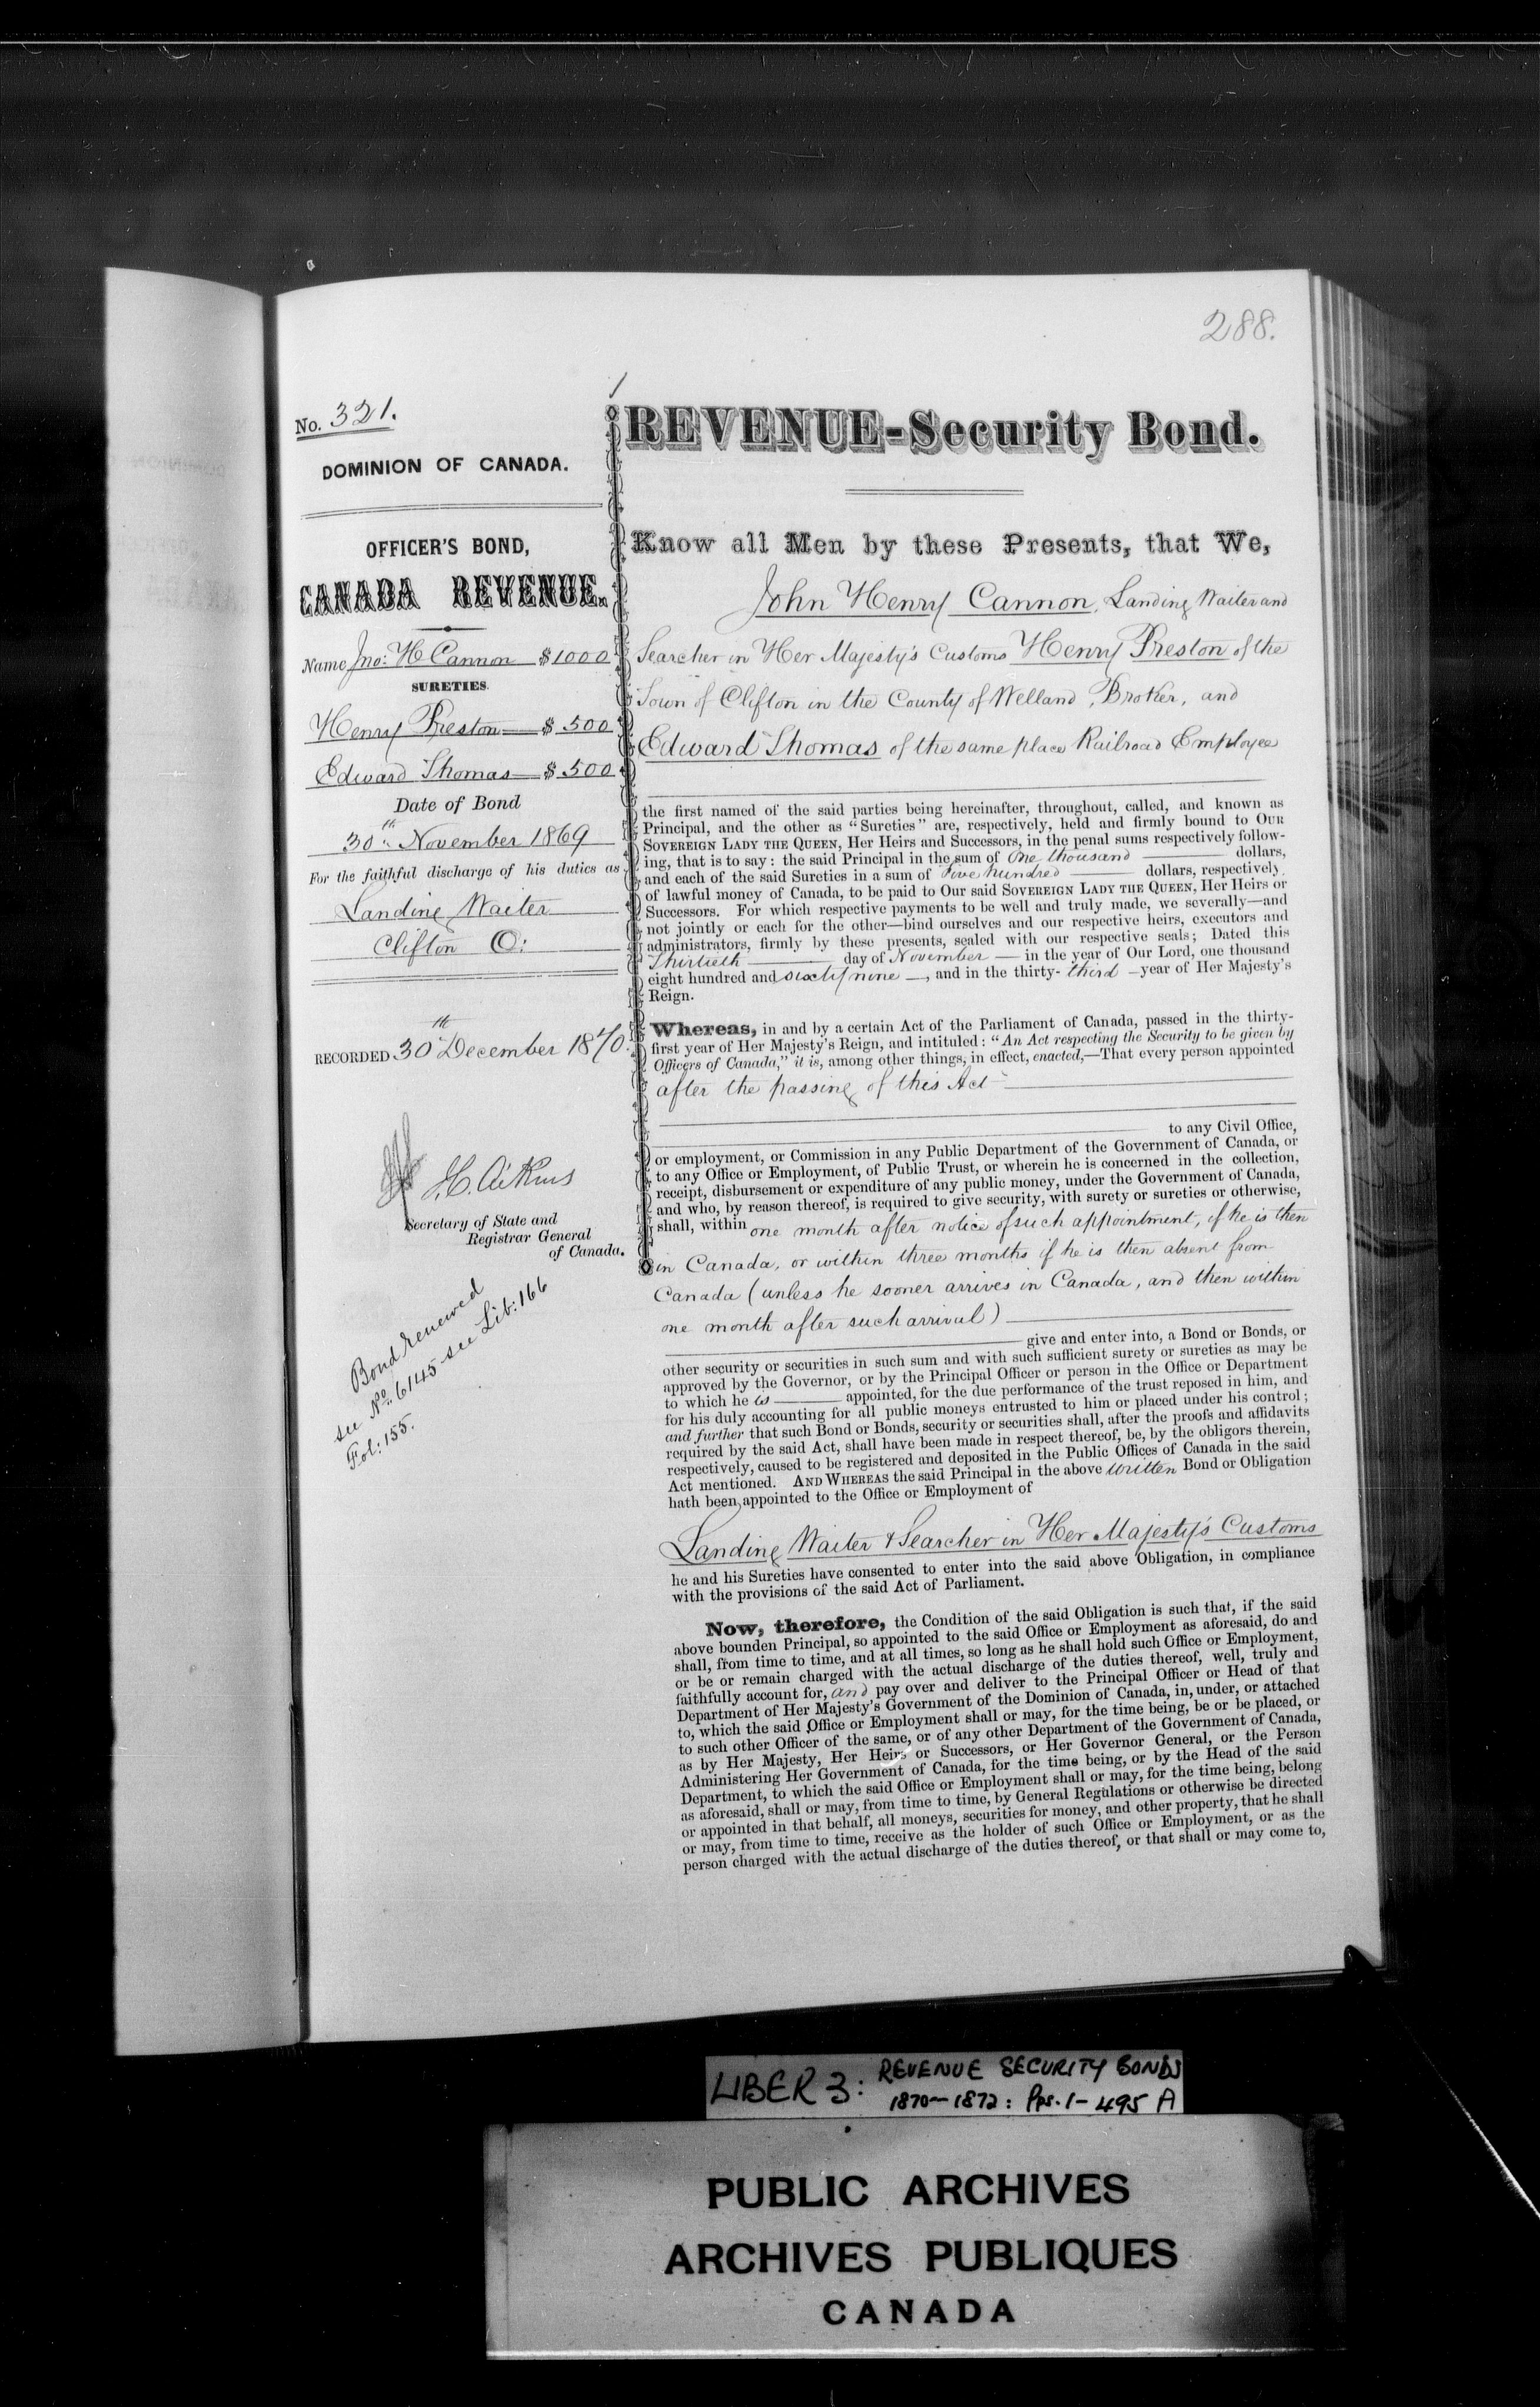 288.
No. 321.
DOMINION OF CANADA.
OFFICER'S BOND,
CANADA REVENUE.
Name Jno: H Cannon $1000
SURETIES.
Henry Preston $500
Edward Thomas $500
Date of Bond
30th November 1869
For the faithful discharge of his duties as
Landing Waiter
Clifton O:
RECORDED 30th December 1870.
J.C. Aikins
Secretary of State and
Registrar General
of Canada.
Bond renewed
see No. 6145 see Lib: 166
Fol: 155.
REVENUE-Security Bond.
Know all Men by these Presents, that We,
John Henry Cannon, Landing Waiter and
Searcher in Her Majesty's Customs Henry Preston of the
Town of Clifton in the County of Welland, Broker, and
Edward Thomas of the same place Railroad Employee
the first named of the said parties being hereinafter, throughout, called, and known as
Principal, and the other as "Sureties" are, respectively, held and firmly bound to OUR
SOVEREIGN LADY THE QUEEN, Her Heirs and Successors, in the penal sums respectively follow-
ing, that is to say: the said Principal in the sum of One thousand dollars,
and each of the said Sureties in a sum of Five hundred dollars, respectively
of lawful money of Canada, to be paid to Our said SOVEREIGN LADY THE QUEEN, Her Heirs or
Successors. For which respective payments to be well and truly made, we severally—and
not jointly or each for the other—bind ourselves and our respective heirs, executors and
administrators, firmly by these presents, sealed with our respective seals; Dated this
Thirtieth day of November in the year of Our Lord, one thousand
eight hundred and sixty nine, and in the thirty-third year of Her Majesty's
Reign.
Whereas, in and by a certain Act of the Parliament of Canada, passed in the thirty-
first year of Her Majesty's Reign, and intituled: "An Act respecting the Security to be given by
Officers of Canada," it is, among other things, in effect, enacted,—That every person appointed
after the passing of this Act
to any Civil Office,
or employment, or Commission in any Public Department of the Government of Canada, or
to any Office or Employment, of Public Trust, or wherein he is concerned in the collection,
receipt, disbursement or expenditure of any public money, under the Government of Canada,
and who, by reason thereof, is required to give security, with surety or sureties or otherwise,
shall, within one month after notice of such appointment, if he is then
in Canada, or within three months if he is then absent from
Canada (unless he sooner arrives in Canada, and then within
one month after such arrival)
give and enter into, a Bond or Bonds, or
other security or securities in such sum and with such sufficient surety or sureties as may be
approved by the Governor, or by the Principal Officer or person in the Office or Department
to which he is appointed, for the due performance of the trust reposed in him, and
for his duly accounting for all public moneys entrusted to him or placed under his control;
and further that such Bond or Bonds, security or securities shall, after the proofs and affidavits
required by the said Act, shall have been made in respect thereof, be, by the obligors therein,
respectively, caused to be registered and deposited in the Public Offices of Canada in the said
Act mentioned. AND WHEREAS the said Principal in the above written Bond or Obligation
hath been appointed to the Office or Employment of
Landing Waiter & Searcher in Her Majesty's Customs
he and his Sureties have consented to enter into the said above Obligation, in compliance
with the provisions of the said Act of Parliament.
Now, therefore, the Condition of the said Obligation is such that, if the said
above bounden Principal, so appointed to the said Office or Employment as aforesaid, do and
shall, from time to time, and at all times, so long as he shall hold such Office or Employment,
or be or remain charged with the actual discharge of the duties thereof, well, truly and
faithfully account for, and pay over and deliver to the Principal Officer or Head of that
Department of Her Majesty's Government of the Dominion of Canada, in, under, or attached
to, which the said Office or Employment shall or may, for the time being, be or be placed, or
to such other Officer of the same, or of any other Department of the Government of Canada,
as by Her Majesty, Her Heirs or Successors, or Her Governor General, or the Person
Administering Her Government of Canada, for the time being, or by the Head of the said
Department, to which the said Office or Employment shall or may, for the time being, belong
as aforesaid, shall or may, from time to time, by General Regulations or otherwise be directed
or appointed in that behalf, all moneys, securities for money, and other property, that he shall
or may, from time to time, receive as the holder of such Office or Employment, or as the
person charged with the actual discharge of the duties thereof, or that shall or may come to,
LIBER 3: REVENUE SECURITY BONDS
1870-1872: Pps. 1-495 A
PUBLIC ARCHIVES
ARCHIVES PUBLIQUES
CANADA